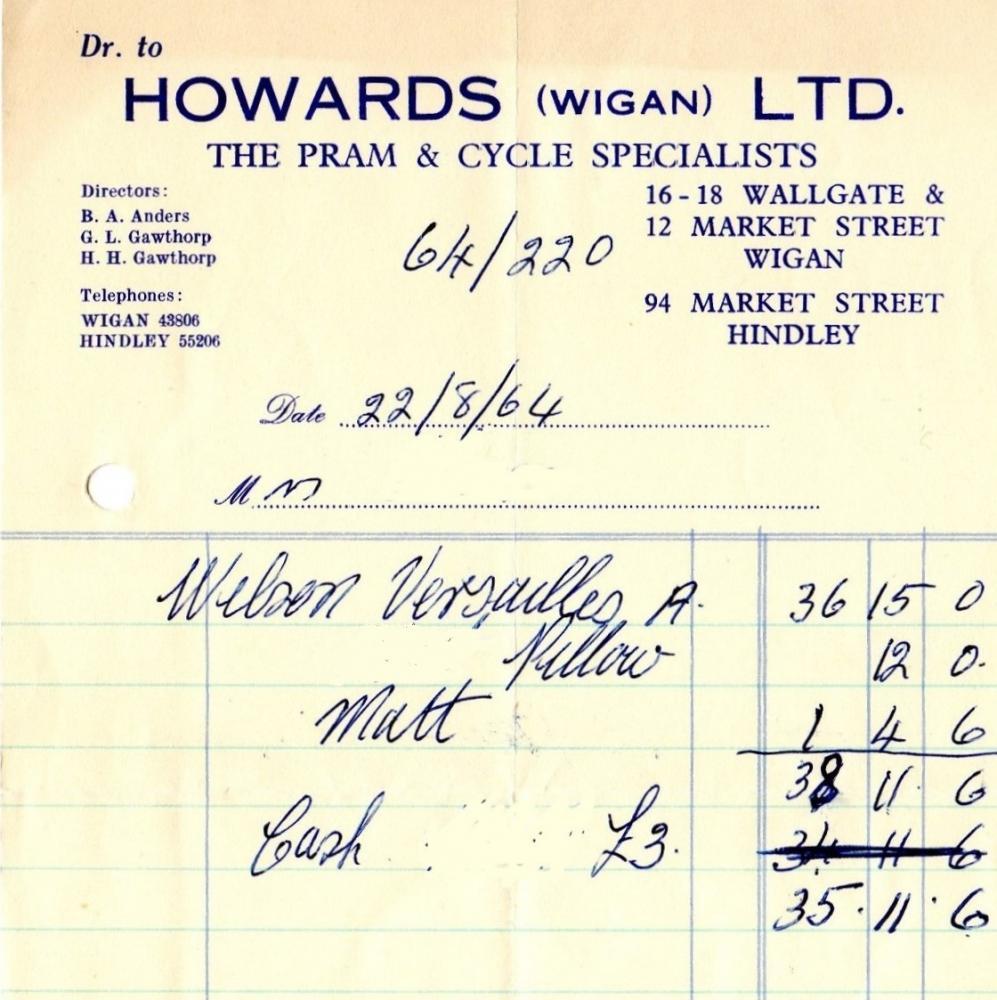 Dr. to
HOWARDS (WIGAN) LTD.
THE PRAM & CYCLE SPECIALISTS
Directors:
B. A. Anders
G. L. Gawthorp
H. H. Gawthorp
Telephones:
WIGAN 43806
HINDLEY 55206
64/220
16-18 WALLGATE &
12 MARKET STREET
WIGAN
94 MARKET STREET
HINDLEY
Date 22/8/64
M
Welson Versailles A. 36 15 0
Pillow 12 0.
Matt 1 4 6
38 11 6
Cash £3. 34 11 6
35. 11. 6